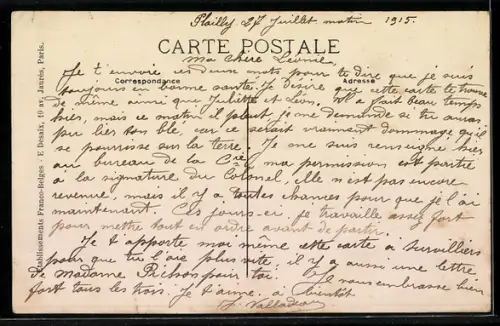 Plailly 27 Juillet matin 1915.
CARTE POSTALE
Correspondance
Adresse
Ma chère Léonie,
Je t'envoie ces deux mots pour te dire que je suis
toujours en bonne santé. Je désire que cette carte te trouve
de même ainsi que Juliette et Léon. Il a fait beau temps
hier, mais ce matin il pleut, je me demande si tu auras
pu lier ton blé, car ce serait vraiment dommage qu'il
se pourrisse sur la terre. Je me suis renseigné hier
au bureau de la Cie ma permission est partie
à la signature du Colonel, elle n'est pas encore
revenue, mais il y a toutes chances pour que je l'ai
maintenant ces jours-ci. Je travaille assez fort
pour mettre tout en ordre avant de partir.
Je t'apporte moi même cette carte à Survilliers
pour que tu l'aie plus vite, il y a aussi une lettre
de madame pour toi. Je vous embrasse bien
fort tous les trois. Je t'aime. à bientôt
J. Valladeau
Etablissements Franco-Belges - E. Desaix, 10 av. Jaurès, Paris.